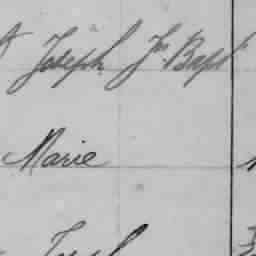 Joseph Jn Bapt
Marie